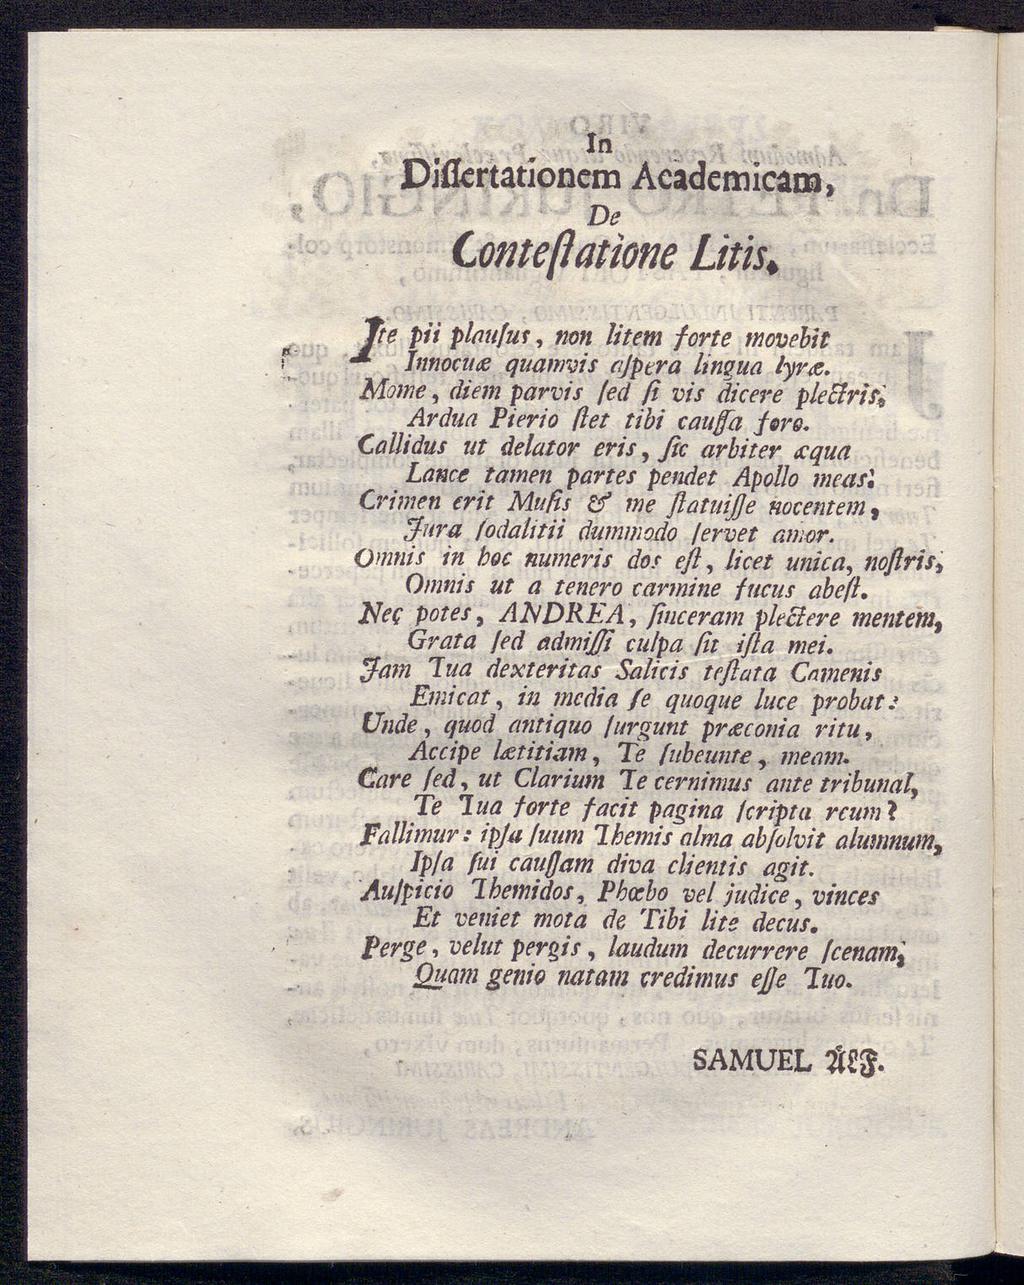 In
Diſſertationem Academicam,
De
Conteſtatione Litis.
Ite pii plauſus, non litem forte movebit
Innocuæ quamvis aſpera lingua lyræ.
Mome, diem parvis ſed ſi vis dicere plectris;
Ardua Pierio ſtet tibi cauſſa foro.
Callidus ut delator eris, ſic arbiter æqua
Lance tamen partes pendet Apollo meas:
Crimen erit Muſis & me ſtatuiſſe nocentem,
Jura ſodalitii dummodo ſervet amor.
Omnis in hoc numeris dos eſt, licet unica, noſtris;
Omnis ut a tenero carmine fucus abeſt.
Nec potes, ANDREA, ſinceram plectere mentem,
Grata ſed admiſſi culpa ſit iſta mei.
Jam Tua dexteritas Salicis teſtata Camenis
Emicat, in media ſe quoque luce probat:
Unde, quod antiquo ſurgunt præconia ritu,
Accipe lætitiam, Te ſubeunte, meam.
Care ſed, ut Clarium Te cernimus ante tribunal,
Te Tua forte facit pagina ſcripta reum?
Fallimur: ipſa ſuum Themis alma abſolvit alumnum,
Ipſa ſui cauſſam diva clientis agit.
Auſpicio Themidos, Phœbo vel judice, vinces
Et veniet mota de Tibi lite decus.
Perge, velut pergis, laudum decurrere ſcenam;
Quam genio natam credimus eſſe Tuo.
SAMUEL ÅLF.